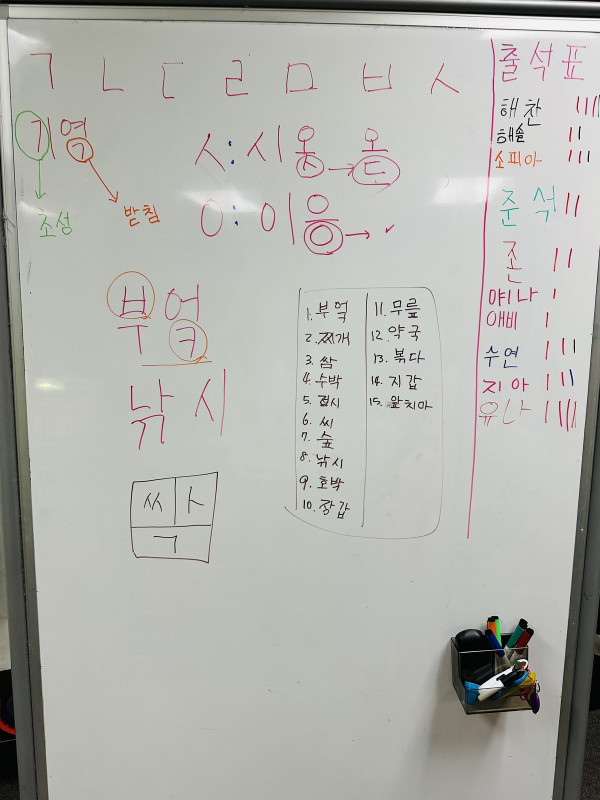 ㄱ ㄴ ㄷ ㄹ ㅁ ㅂ ㅅ
기역
초성
받침
ㅅ: 시옷 → 옫
ㅇ: 이응 → ✓
부엌
낚시
ㅆ ㅏ
ㄱ
1. 부엌
2. 찌개
3. 쌈
4. 수박
5. 접시
6. 씨
7. 숲
8. 낚시
9. 호박
10. 장갑
11. 무릎
12. 약국
13. 볶다
14. 지갑
15. 앞치마
출석표
해찬 ||||
해솔 ||
소피아 |||
준석 ||
존 ||
애비 |
수연 |||
지아 |||
유나 ||||